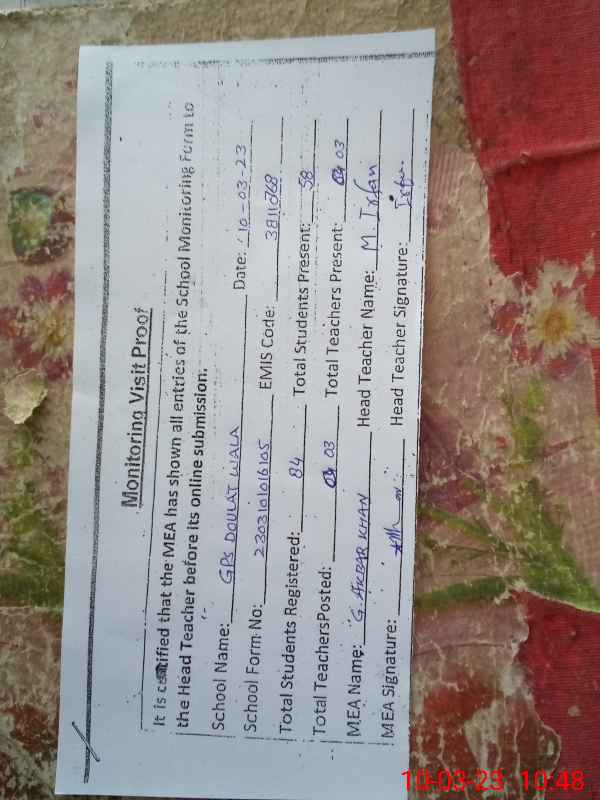 Monitoring Visit Proof
It is certified that the MEA has shown all entries of the School Monitoring Form to
the Head Teacher before its online submission.
School Name: GPS DOULAT WALA Date: 10-03-23
School Form No: 2303101016105 EMIS Code: 38110268
Total Students Registered: 84 Total Students Present: 58
Total TeachersPosted: 03 Total Teachers Present: 03
MEA Name: G. AKBAR KHAN Head Teacher Name: M. Irfan
MEA Signature: Head Teacher Signature: Irfan
10-03-23 10:48